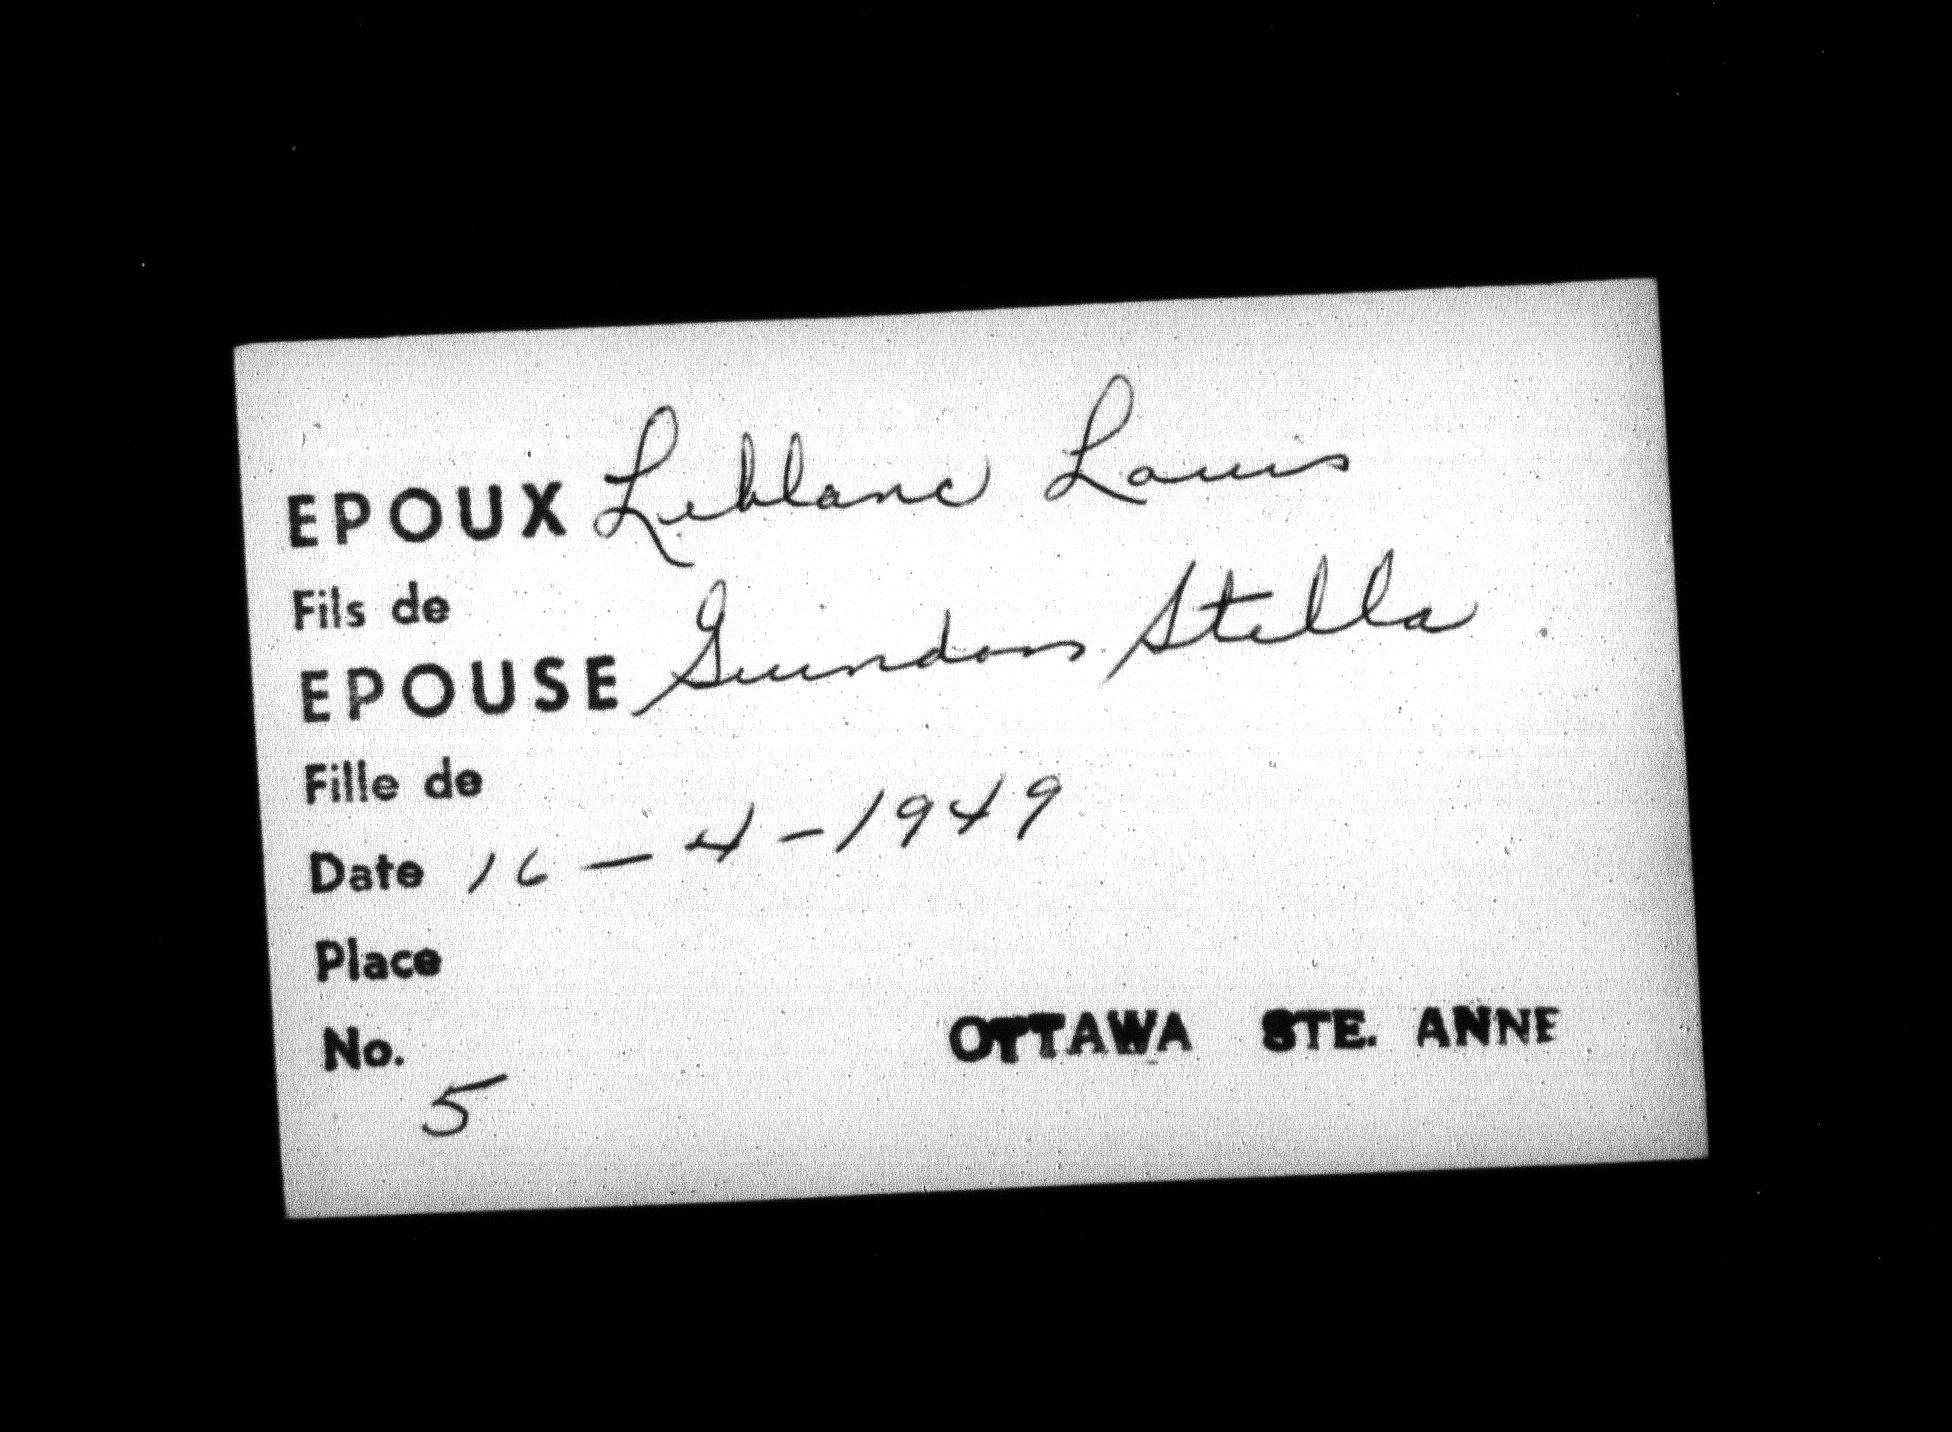 EPOUX Leblanc Louis
Fils de
EPOUSE Guindon Stella
Fille de
Date 16 - 4 - 1949
Place
No.
OTTAWA STE. ANNE
5